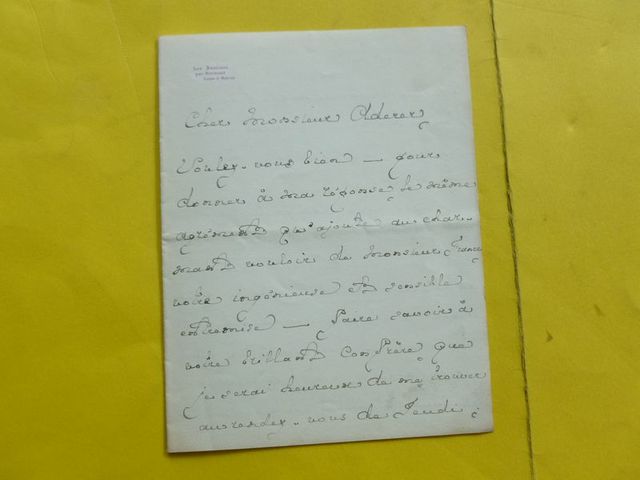 Cher Monsieur Aderer,
Voulez-vous bien — pour
donner à ma réponse le même
agrément qu'ajoute au char-
mant vouloir de Monsieur France
votre ingénieuse et sensible
entremise — faire savoir à
votre brillant confrère que
je serai heureux de me trouver
au rendez-vous de Jeudi;